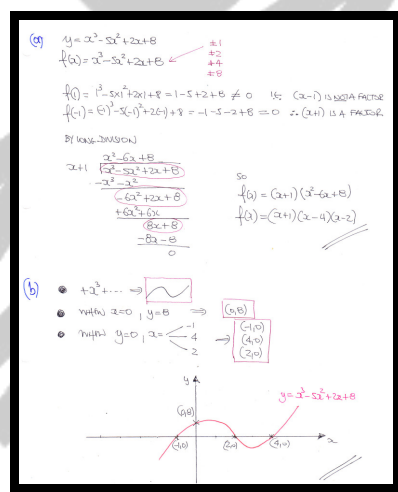 (a) y = x³-5x²+2x+8
f(x) = x³-5x²+2x+8
±1
±2
±4
±8
f(1) = 1³-5×1²+2×1+8 = 1-5+2+8 ≠ 0 IE (x-1) IS NOT A FACTOR
f(-1) = (-1)³-5(-1)²+2(-1)+8 = -1-5-2+8 = 0 ∴ (x+1) IS A FACTOR
BY LONG DIVISION
x²-6x+8
x+1 x³-5x²+2x+8
-x³-x²
-6x²+2x+8
+6x²+6x
8x+8
-8x-8
0
SO
f(x) = (x+1)(x²-6x+8)
f(x) = (x+1)(x-4)(x-2)
(b) • +x³+... ⇒
• WHEN x=0, y=8 ⇒ (0,8)
• WHEN y=0, x= -1 4 2 ⇒ (-1,0) (4,0) (2,0)
y
y = x³-5x²+2x+8
(0,8)
(-1,0) (2,0) (4,0) x